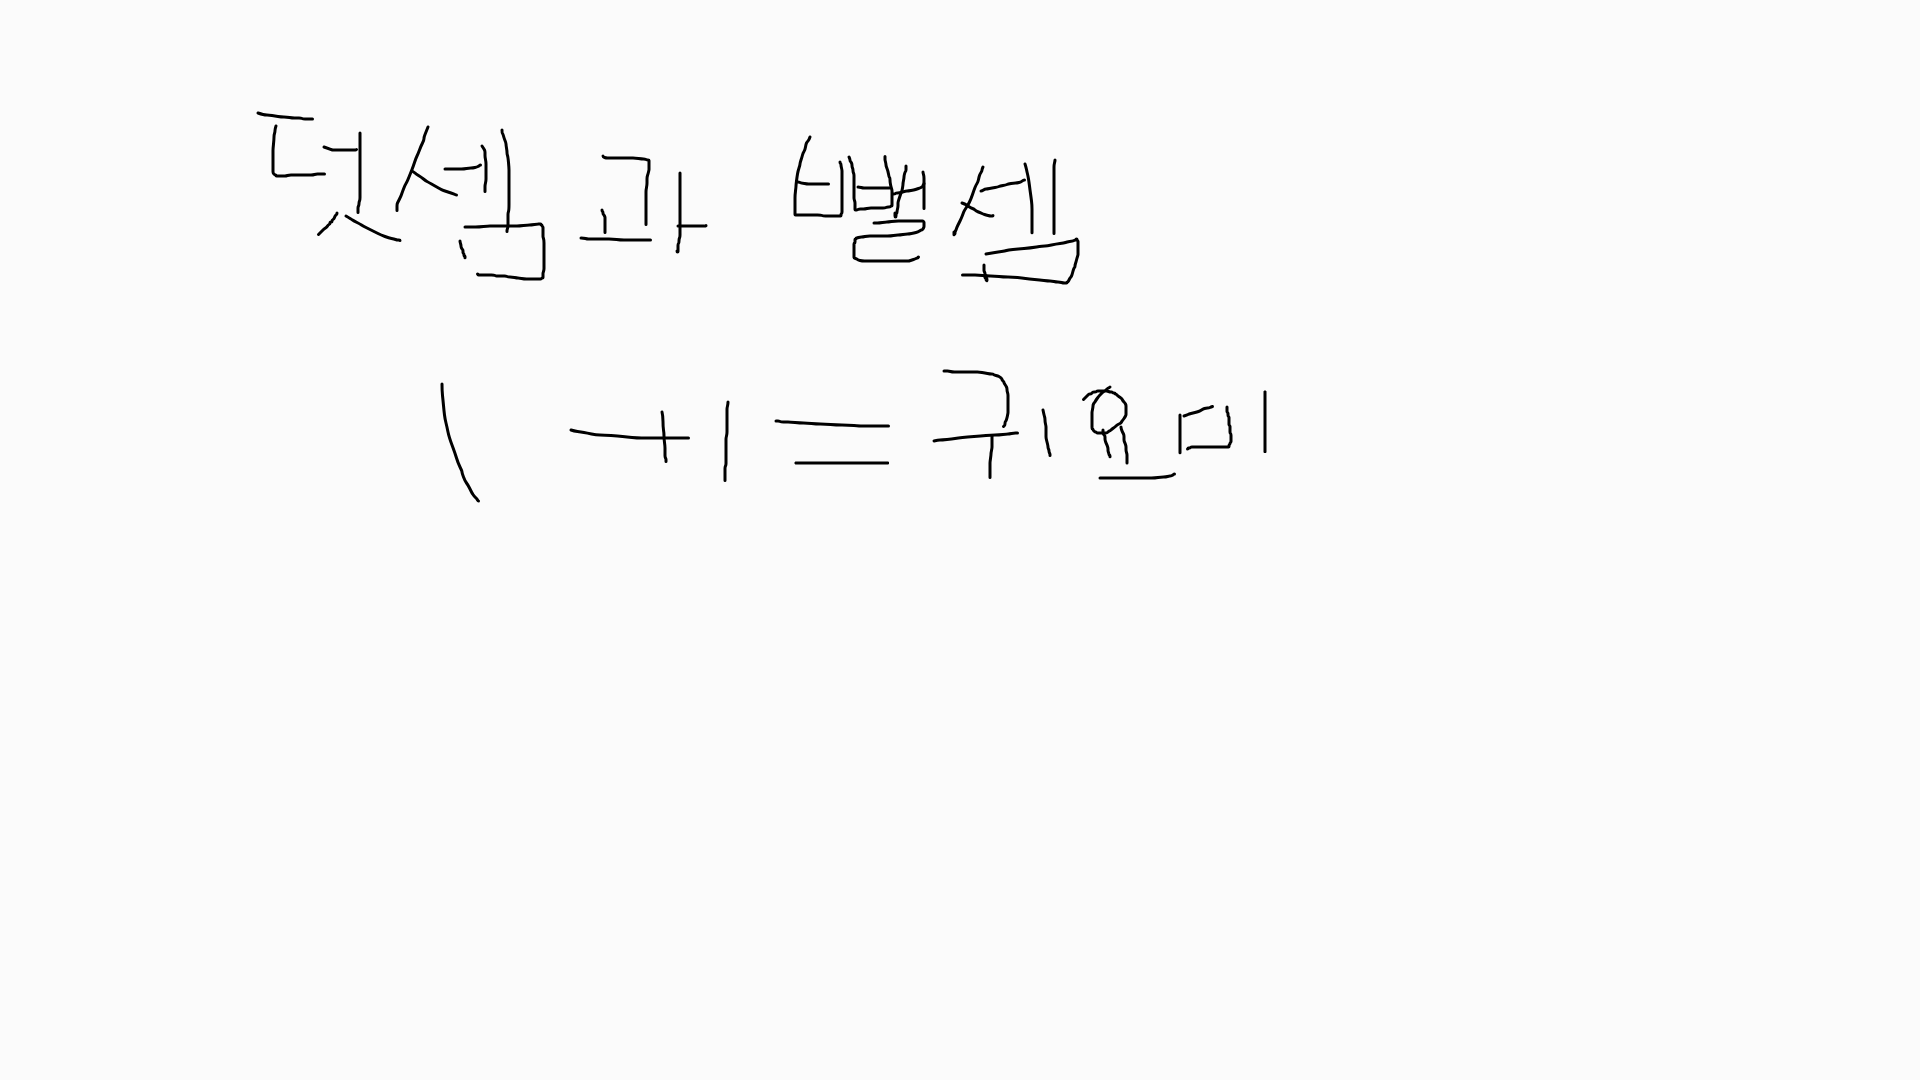 덧셈과 뺄셈
1 + 1 = 귀요미